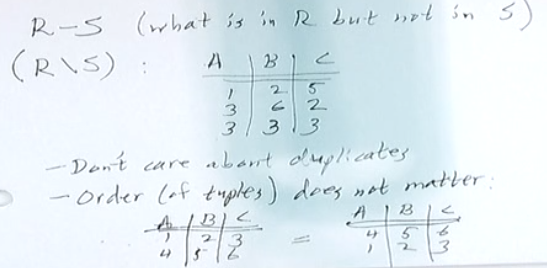 R-S (what is in R but not in S)
(R\S) :
A B C
1 2 5
3 6 2
3 3 3
- Don't care about duplicates
- Order (of tuples) does not matter:
A B C = A B C
1 2 3 4 5 6
4 5 6 1 2 3